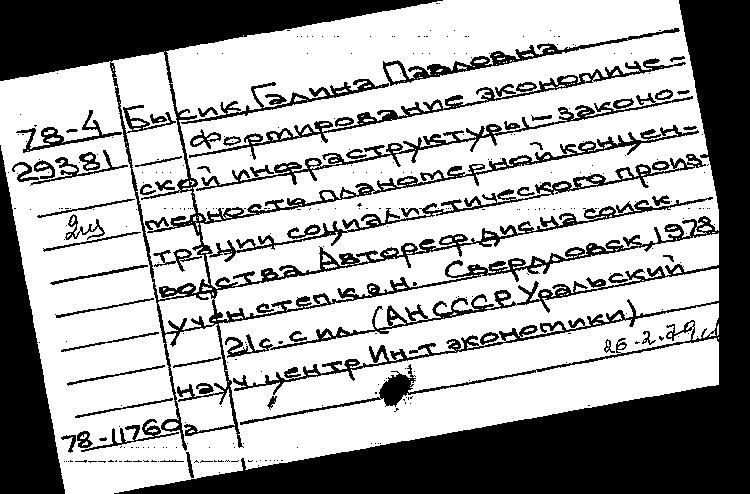 78-4 Бысик, Галина Павловна
29381 Формирование экономиче-
ской инфраструктуры - законо-
мерность планомерной концен-
трации социалистического произ-
водства. Автореф. дис. на соиск.
учен. степ. к.э.н. Свердловск, 1978
21с. с ил. (АН СССР. Уральский
науч. центр. Ин-т экономики).
26.2.79
78-11760а